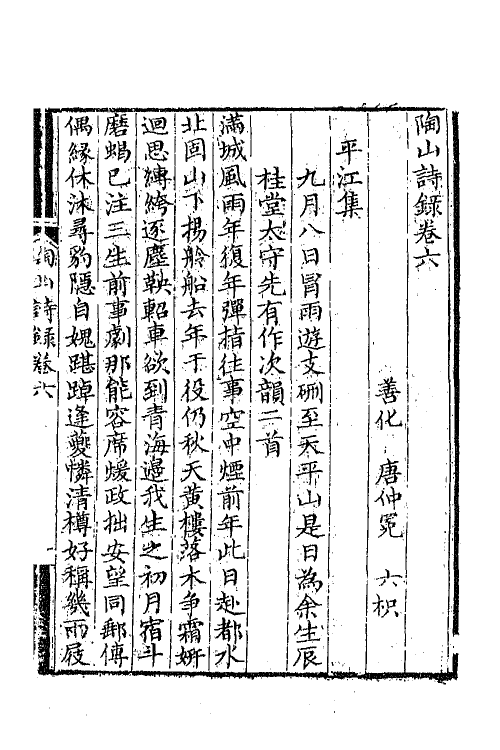 陶山詩錄卷六
善化 唐仲冕 六枳
平江集
九月八日冐雨遊支硎至天平山是日為余生辰
桂堂太守先有作次韻二首
滿城風雨年復年彈指往事空中煙前年此日赴都水
北固山下揚舲船去年于役仍秋天黃樓落木爭霜妍
迴思縛絝逐塵鞅軺車欲到青海邊我生之初月宿斗
磨蝎已注三生前事劇那能容席煖政拙安望同郵傳
偶緣休沐尋豹隱自媿踸踔逢夔憐清樽好稱幾兩屐
陶山詩錄卷六